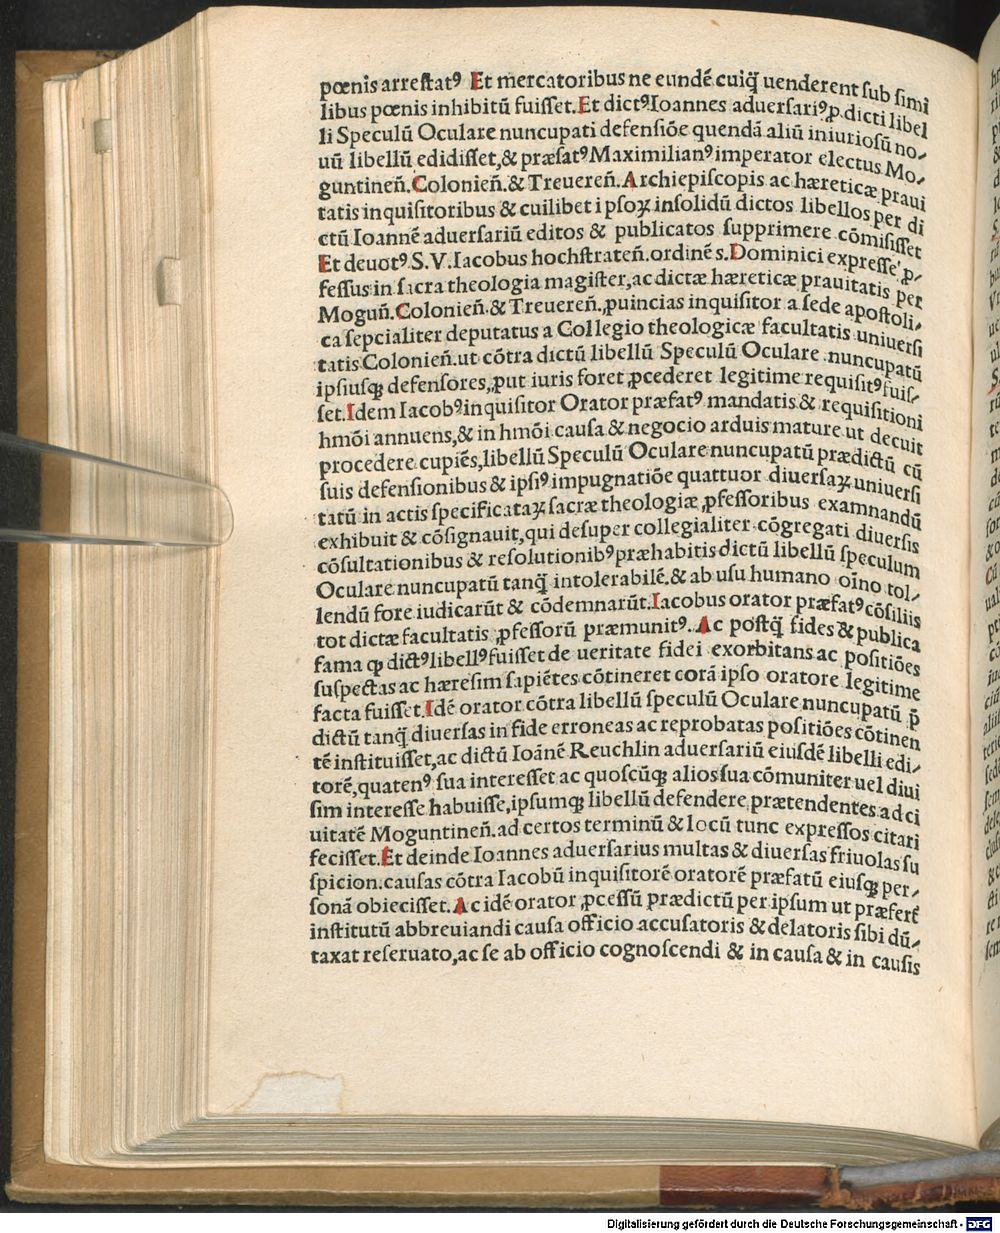 pœnis arrestatꝰ Et mercatoribus ne eundē cuiq̄ uenderent sub simi
libus pœnis inhibitū fuisset. Et dictꝰ Ioannes aduersariꝰ ꝓ dicti libel
li Speculū Oculare nuncupati defensiōe quendā aliū iniuriosū no⸗
uū libellū edidisset, & præfatꝰ Maximilianꝰ imperator electus Mo⸗
guntineñ. Colonieñ. & Treuereñ. Archiepiscopis ac hæreticæ praui
tatis inquisitoribus & cuilibet ipsoꝝ insolidū dictos libellos per di
ctū Ioannē aduersariū editos & publicatos supprimere cōmisisset
Et deuotꝰ S. V. Iacobus hochstrateñ. ordinē s. Dominici expresse' ꝓ⸗
fessus in sacra theologia magister, ac dictæ hæreticæ prauitatis per
Moguñ. Colonieñ. & Treuereñ. ꝓuincias inquisitor a sede apostoli⸗
ca sepcialiter deputatus a Collegio theologicæ facultatis uniuersi
tatis Colonieñ. ut cōtra dictū libellū Speculū Oculare nuncupatū
ipsiusqꝫ defensores, ꝓut iuris foret ꝓcederet legitime requisitꝰ fuis⸗
set. Idem Iacobꝰ inquisitor Orator præfatꝰ mandatis & requisitioni
hmōi annuens, & in hmōi causa & negocio arduis mature ut decuit
procedere cupiēs, libellū Speculū Oculare nuncupatū prædictū cū
suis defensionibus & ipsiꝰ impugnatiōe quattuor diuersaꝝ uniuersi
tatū in actis specificataꝝ sacræ theologiæ ꝓfessoribus examnandū
exhibuit & cōsignauit, qui desuper collegialiter cōgregati diuersis
cōsultationibus & resolutionibꝰ præhabitis dictū libellū speculum
Oculare nuncupatū tanq̄ intolerabilē. & ab usu humano oīno tol⸗
lendū fore iudicarūt & cōdemnarūt. Iacobus orator præfatꝰ cōsiliis
tot dictæ facultatis ꝓfessorū præmunitꝰ. Ac postq̄ fides & publica
fama ꝙ dictꝰ libellꝰ fuisset de ueritate fidei exorbitans ac positiōes
suspectas ac hæresim sapiētes cōtineret corā ipso oratore legitime
facta fuisset. Idē orator cōtra libellū speculū Oculare nuncupatū p̄
dictū tanq̄ diuersas in fide erroneas ac reprobatas positiōes cōtinen
tē instituisset, ac dictū Ioānē Reuchlin aduersariū eiusdē libelli edi⸗
torē, quatenꝰ sua interesset ac quoscūqꝫ alios sua cōmuniter uel diui
sim interesse habuisse, ipsumqꝫ libellū defendere prætendentes ad ci
uitatē Moguntineñ. ad certos terminū & locū tunc expressos citari
fecisset. Et deinde Ioannes aduersarius multas & diuersas friuolas su
spicion. causas cōtra Iacobū inquisitorē oratorē præfatū eiusqꝫ per⸗
sonā obiecisset. Ac idē orator ꝓcessū prædictū per ipsum ut præfert̄
institutū abbreuiandi causa officio accusatoris & delatoris sibi dū⸗
taxat reseruato, ac se ab officio cognoscendi & in causa & in causis
Digitalisierung gefördert durch die Deutsche Forschungsgemeinschaft - DFG